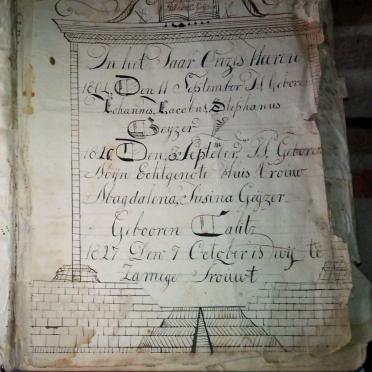 In het Jaar Onzes Heeren
Den 11 September Is Geboren
Johannis Jacobus Stephanus
Geyzer
Den September Is Geboren
Mijn Echtgenote Huis Vrouw
Magdalena Susina Geyzer
Gebooren Calitz
1827 Den 7 October is wij te
Zamige Trouwt